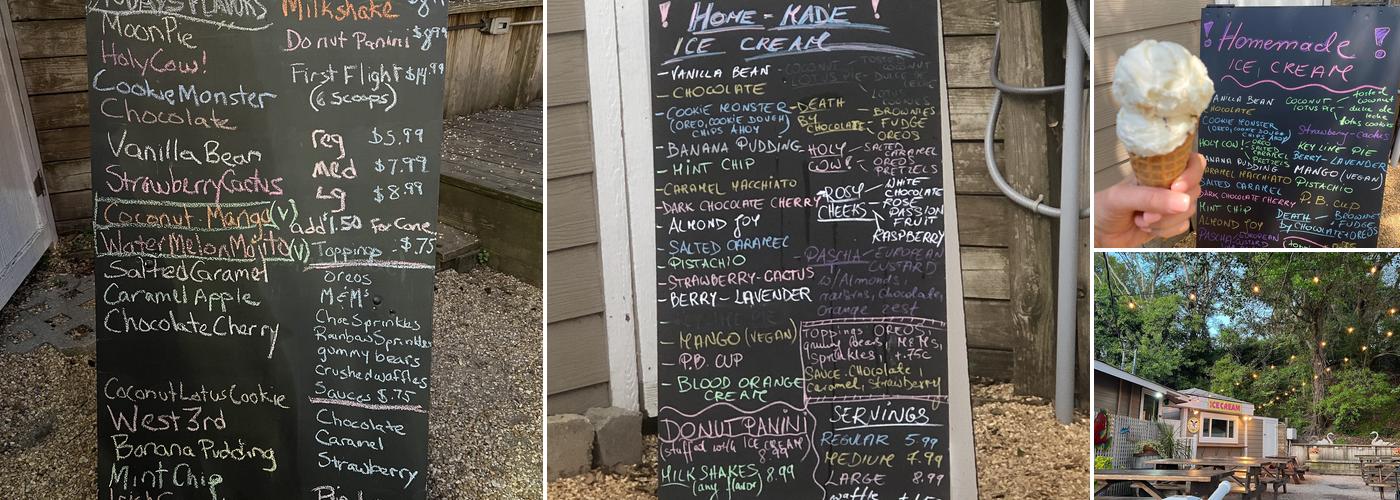 TODAYS FLAVORS
MoonPie
HolyCow!
CookieMonster
Chocolate
Vanilla Bean
StrawberryCactus
Coconut Mango (V)
WaterMelonMojito (V)
SaltedCaramel
Caramel Apple
ChocolateCherry
CoconutLotusCookie
West 3rd
Banana Pudding
Mint Chip
Milkshake
Donut Panini
First Flight $14.99
(6 Scoops)
reg $5.99
med $7.99
Lg $8.99
add 1.50 For Cone
Toppings $.75
Oreos
M&Ms
ChocSprinkles
RainbowSprinkles
gummy bears
Crushedwaffles
Sauces $.75
Chocolate
Caramel
Strawberry
! HOME-MADE !
ICE CREAM
-VANILLA BEAN
-CHOCOLATE
-COOKIE MONSTER
(OREO, COOKIE DOUGH)
CHIPS AHOY
-BANANA PUDDING
-MINT CHIP
-CARAMEL MACCHIATO
-DARK CHOCOLATE CHERRY
-ALMOND JOY
-SALTED CARAMEL
-PISTACHIO
-STRAWBERRY-CACTUS
-BERRY-LAVENDER
-MANGO (VEGAN)
-P.B. CUP
-BLOOD ORANGE
CREAM
DONUT PANINI
(stuffed with ICE CREAM)
8.99
MILKSHAKES 8.99
(any flavor)
-COCONUT
LOTUS PIE
TOSTED
COCONUT
DULCE DE
LECHE
LOTUS
COOKIES
-DEATH
BY
CHOCOLATE
BROWNIES
FUDGE
OREOS
HOLY
COW!
SALTED
CARAMEL
OREOS
PRETZELS
ROSY
CHEEKS
WHITE
CHOCOLATE
ROSE
PASSION
FRUIT
RASPBERRY
-PASCHA-EUROPEAN
CUSTARD
w/Almonds,
raisins, Chocolate,
orange zest
TOPPINGS OREOS,
gummy bears, M&Ms,
Sprinkles, +.75c
SAUCE.Chocolate,
caramel, Strawberry
SERVINGS
REGULAR 5.99
MEDIUM 7.99
LARGE 8.99
! Homemade !
ICE CREAM
VANILLA BEAN
CHOCOLATE
COOKIE MONSTER
(OREO, COOKIE DOUGH
CHIPS AHOY
HOLY COW! OREO
SALTED
CARAMEL
PRETZELS
BANANA PUDDING
CARAMEL MACCHIATO
SALTED CARAMEL
DARK CHOCOLATE CHERRY
MINT CHIP
ALMOND JOY
PASCHA-EUROPEAN
CUSTARD
COCONUT
LOTUS PIE
tosted
coconut
dulce de
leche
lotus cookies
Strawberry-Cactus
KEY LIME PIE
BERRY-LAVENDER
MANGO (VEGAN)
PISTACHIO
P.B. CUP
DEATH
by CHOCOLATE
BROWNIE
FUDGE
OREOS
ICE CREAM